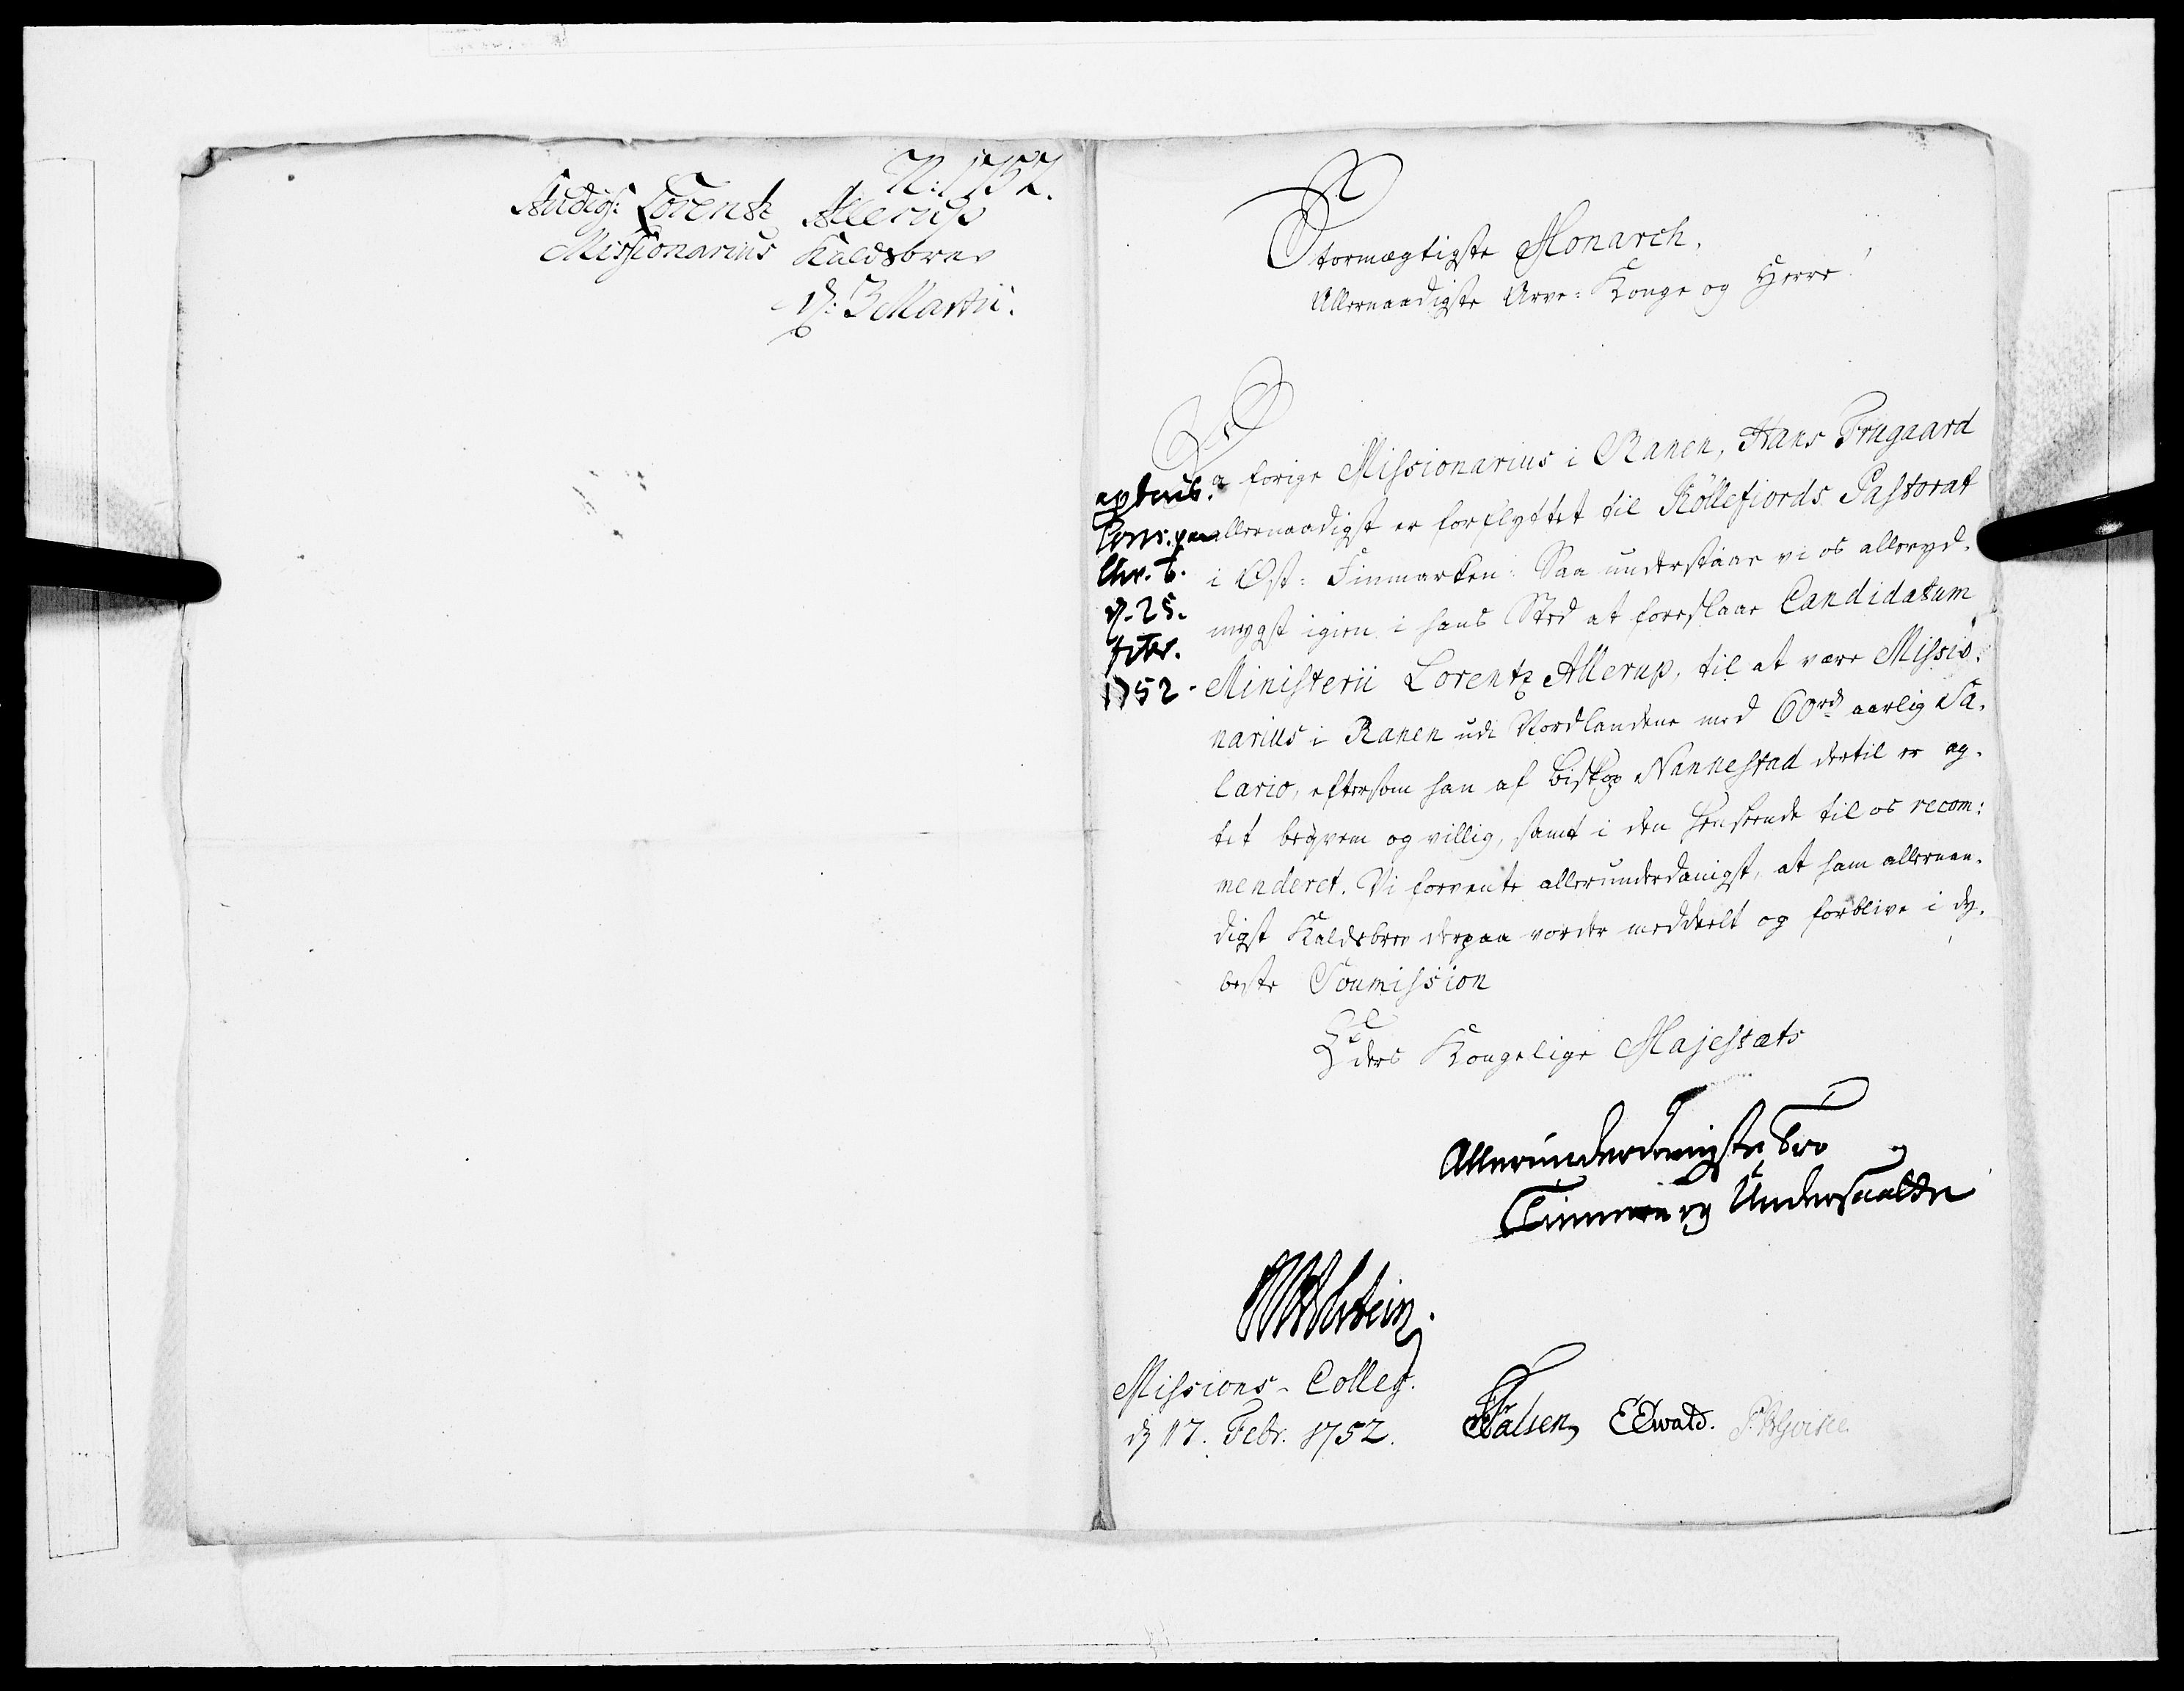 N: 1752.
Studios: Lorentz Allerup
Missionarius Kaldsbrev
d: 3 Martii.
Stormægtigste Monarch,
Allernaadigste Arve-Konge og Herre!
Da forige Missionarius i Ranen, Hans Trugaard
allernaadigst er forflyttet til Köllefiords Pastorat
i Øst-Finmarken: Saa understaar vi os alleryd-
mygst igien i hans Sted at foreslaae Candidatum
Ministerii Lorentz Allerup, til at være Missio-
narius i Ranen udi Nordlandene med 60 rd aarlig Sa-
lario, eftersom han af Biskop Nannestad dertil er ag-
tet beqvem og villig, samt i den Henseende til os recom-
menderet. Vi forvente allerunderdanigst, at ham allernaa-
digst Kaldsbrev derpaa vorder meddeelt og forblive i dy-
beste Soumission
Eders Kongelige Majestæts
Allerunderdanigste Troe
Tiennere og Undersaatter
d. 25.
Febr.
1752.
Holstein.
Missions-Colleg.
d 17. Febr. 1752.
EEwald.